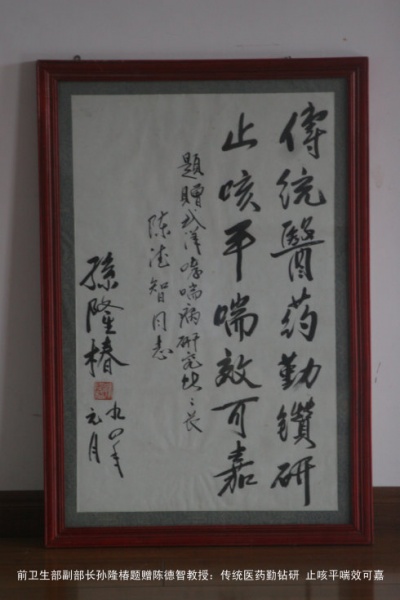 傳统醫药勤鑽研
止咳平喘效可嘉
題贈哮喘病研究所〻长
陈德智同志
孫隆椿
九四年
元月
前卫生部副部长孙隆椿题赠陈德智教授：传统医药勤钻研 止咳平喘效可嘉